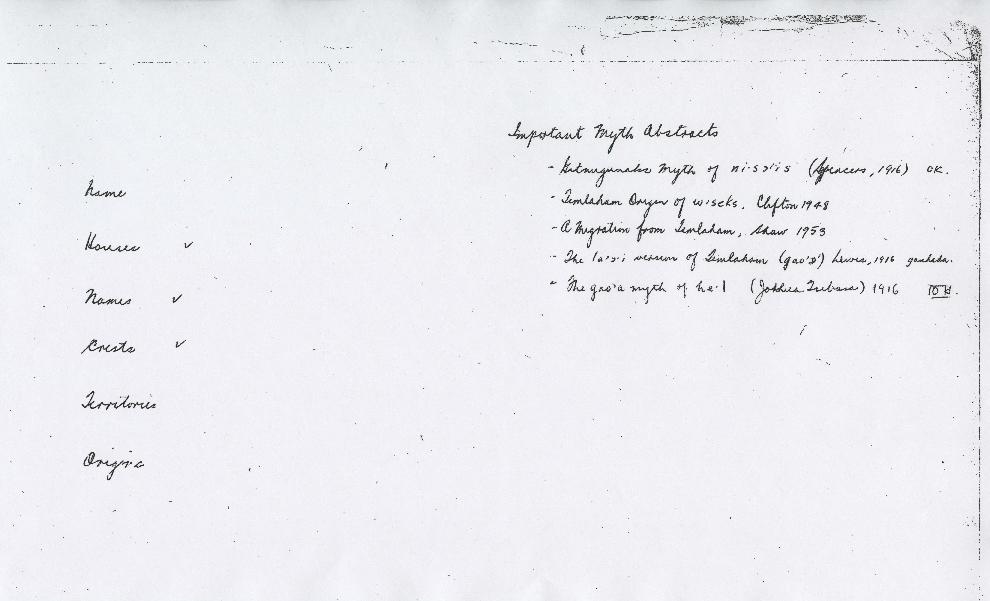 Name
Houses ✓
Names ✓
Crests ✓
Territories
Origins
Important Myth Abstracts
- Myth of ni·s (Spencers, 1916) OK.
- Temlaham Origin of wiseks, Clifton 1948
- A Migration from Temlaham, Shaw 1953
- The version of Temlaham Lewis, 1916 ganhada.
- The myth of he·l (Joshua Tsibasa) 1916